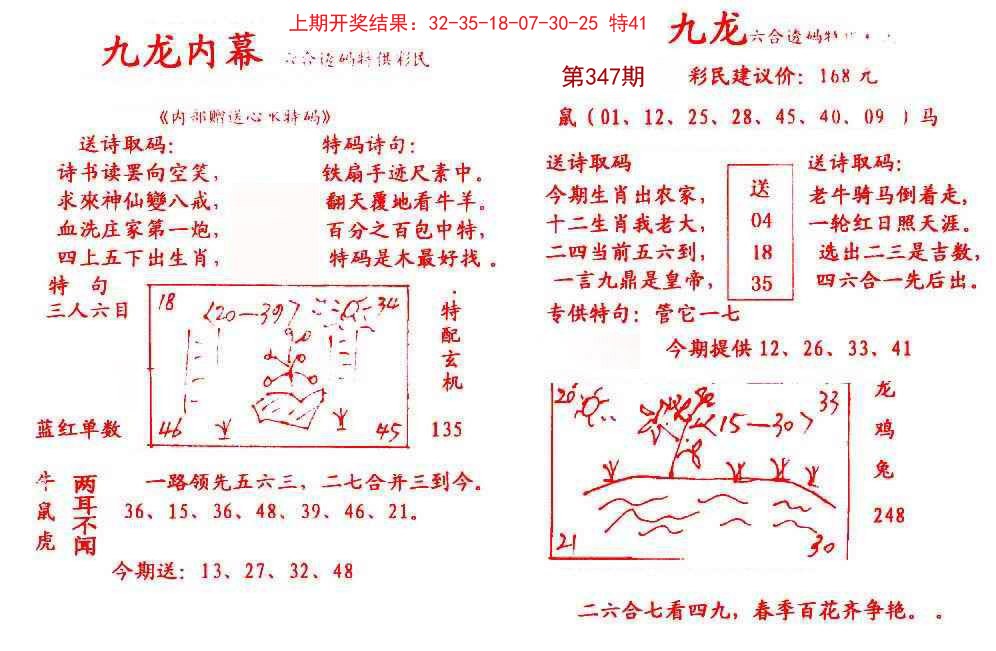 上期开奖结果：32-35-18-07-30-25 特41
九龙内幕
六合透码特供彩民
《内部赠送心水特码》
送诗取码：
诗书读罢向空笑，
求來神仙變八戒，
血洗庄家第一炮，
四上五下出生肖，
特码诗句：
铁扇手迹尺素中。
翻天覆地看牛羊。
百分之百包中特，
特码是木最好找。
特 句
三人六目
蓝红单数
18
〈20—39〉
34
46
45
·特配玄机
135
牛鼠虎
两耳不闻
一路领先五六三，二七合并三到今。
36、15、36、48、39、46、21。
今期送：13、27、32、48
九龙
六合透码特
第347期
彩民建议价：168元
鼠（01、12、25、28、45、40、09 ）马
送诗取码
今期生肖出农家，
十二生肖我老大，
二四当前五六到，
一言九鼎是皇帝，
送
04
18
35
送诗取码：
老牛骑马倒着走，
一轮红日照天涯。
选出二三是吉数，
四六合一先后出。
专供特句：管它一七
今期提供12、26、33、41
20
〈15—30〉
33
21
30
龙
鸡
兔
248
二六合七看四九，春季百花齐争艳。。